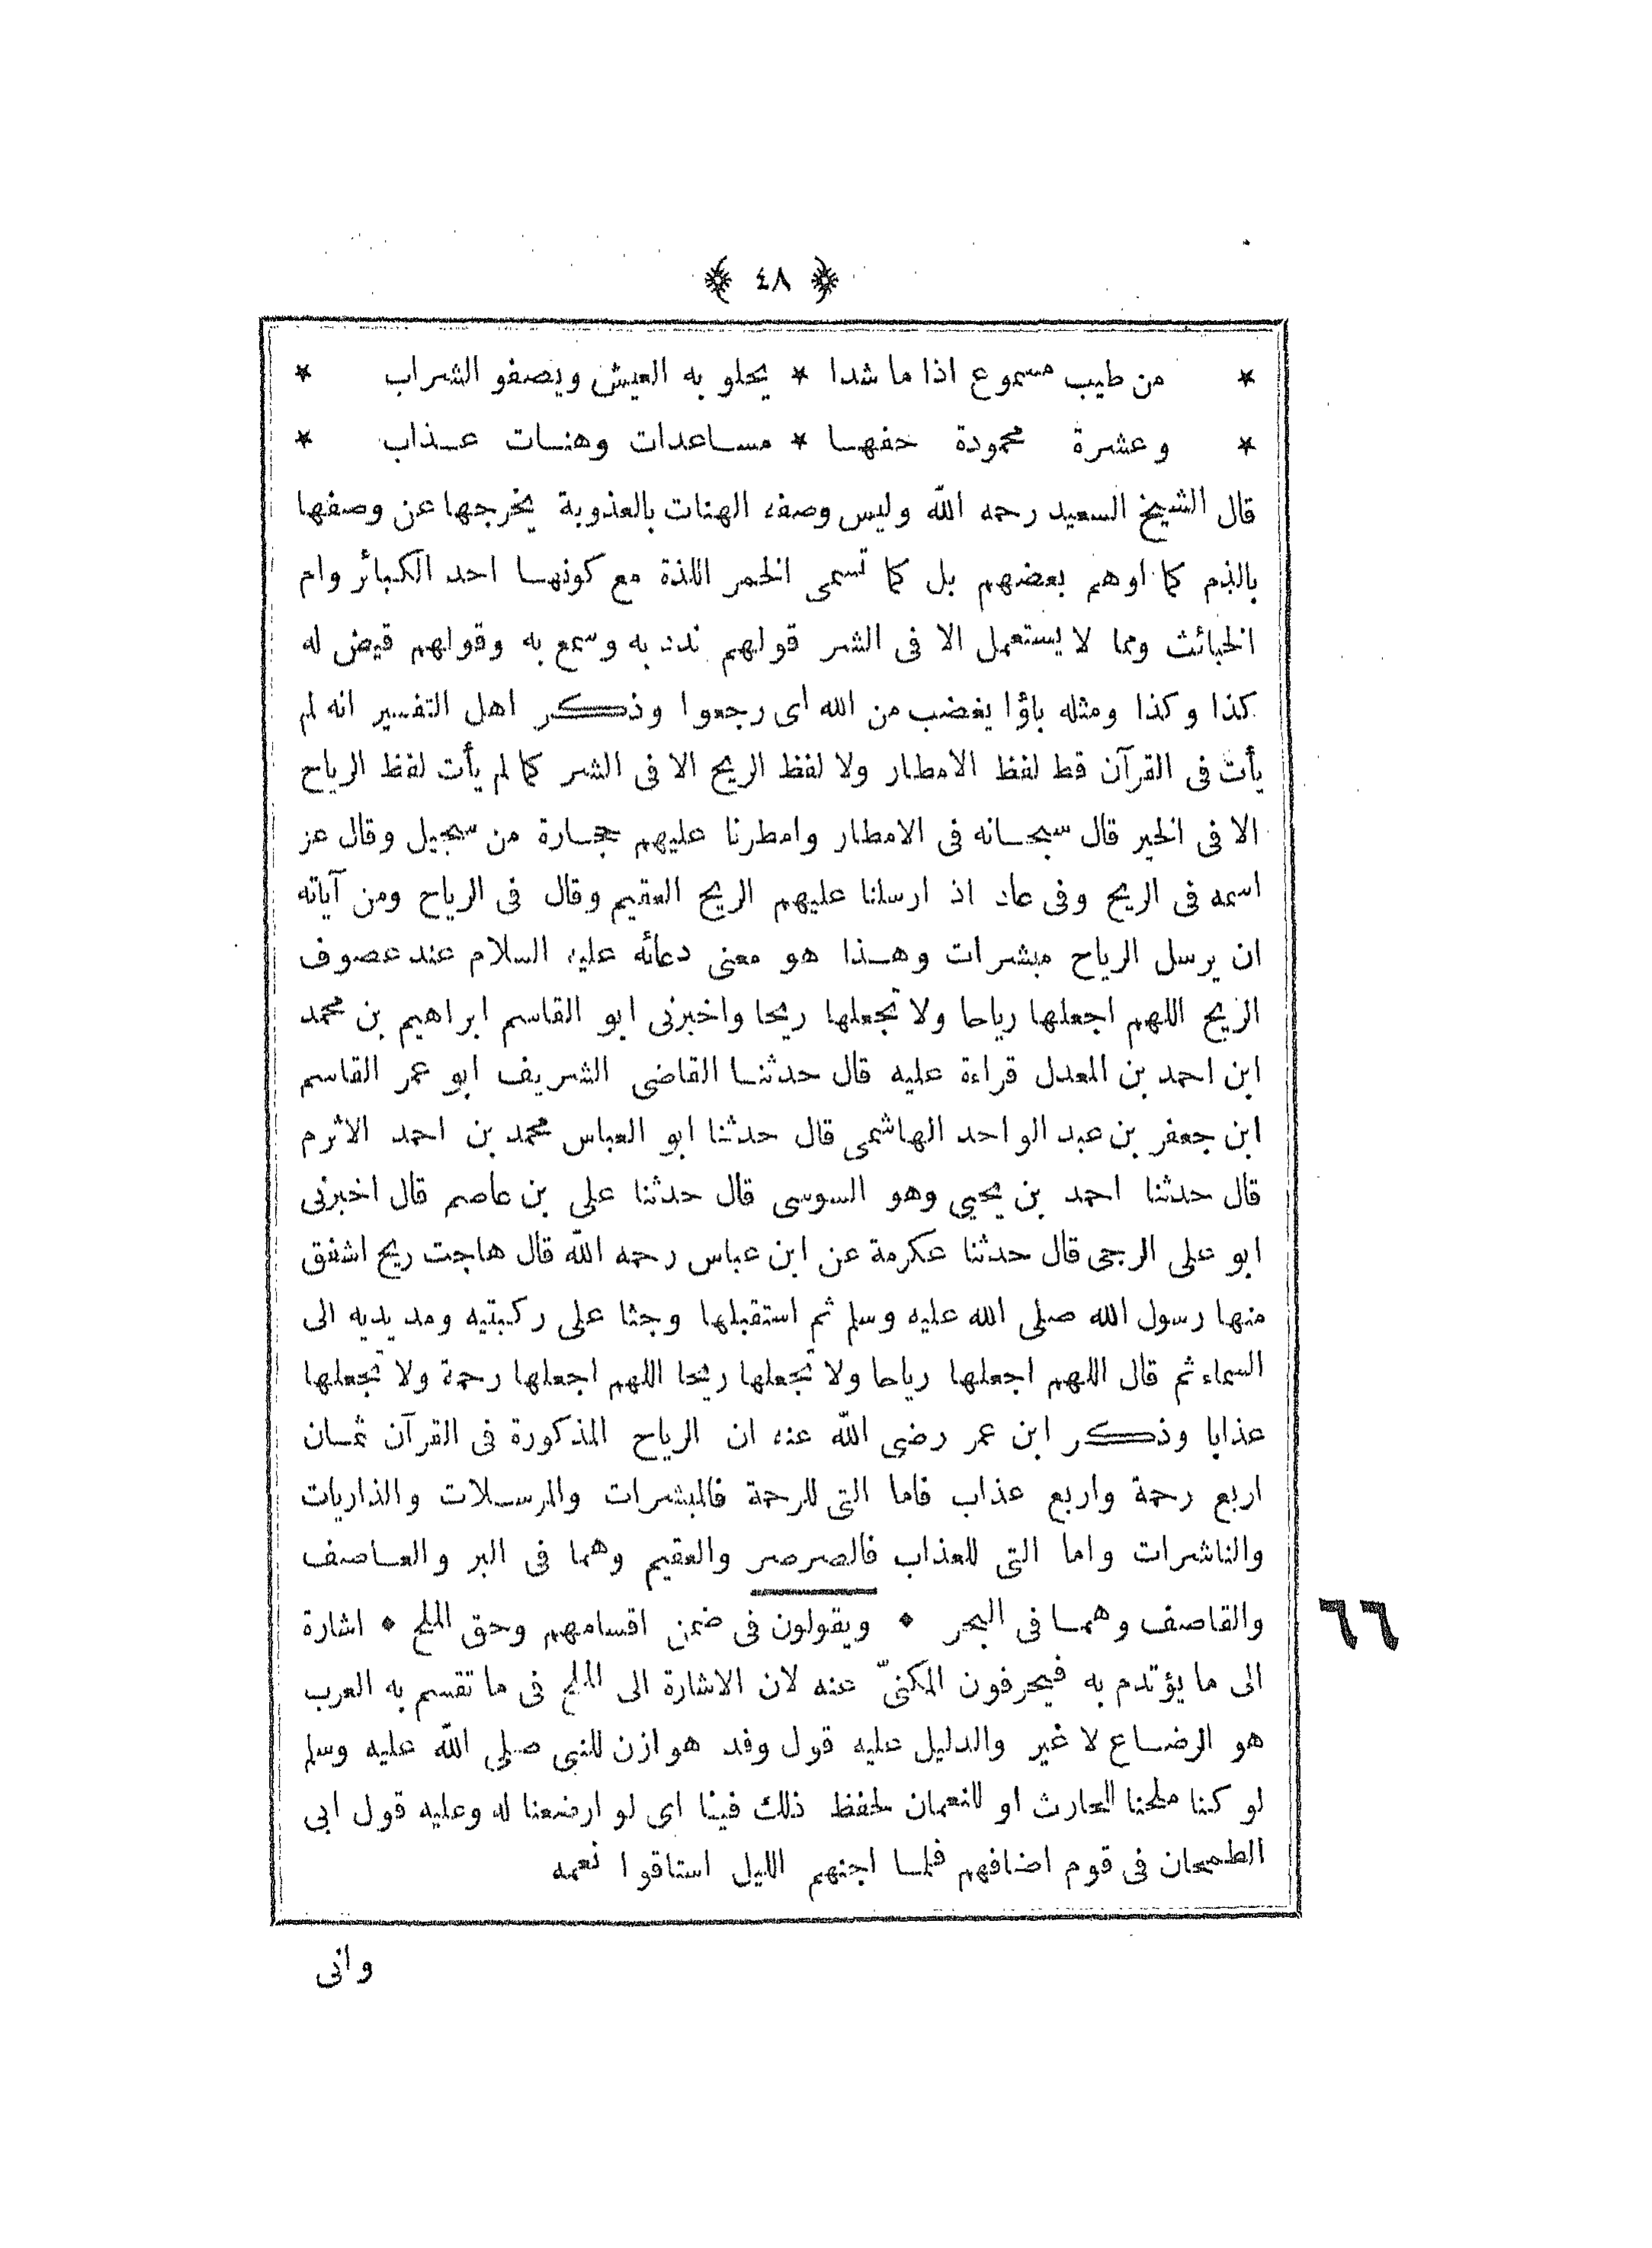 ﴿ ٤٨ ﴾
* من طيب مسموع اذا ما شدا * يحلو به العيش ويصفو الشراب *
* وعشرة محمودة حفهـا * مسـاعدات وهنـات عـذاب *
قال الشيخ السعيد رحمه الله وليس وصفه الهنات بالعذوبة يخرجها عن وصفها
بالذم كما اوهم بعضهم بل كما تسمى الخمر اللذة مع كونهـا احد الكبائر وام
الخبائث ومما لا يستعمل الا فى الشر قولهم ندد به وسمع به وقولهم قيض له
كذا وكذا ومثله باؤا بغضب من الله اى رجعوا وذكر اهل التفسير انه لم
يأت فى القرآن قط لفظ الامطار ولا لفظ الريح الا فى الشر كما لم يأت لفظ الرياح
الا فى الخير قال سبحـانه فى الامطار وامطرنا عليهم حجـارة من سجيل وقال عز
اسمه فى الريح وفى عاد اذ ارسلنا عليهم الريح العقيم وقال فى الرياح ومن آياته
ان يرسل الرياح مبشرات وهـذا هو معنى دعائه عليه السلام عند عصوف
الريح اللهم اجعلها رياحا ولا تجعلها ريحا واخبرنى ابو القاسم ابراهيم بن محمد
ابن احمد بن المعدل قراءة عليه قال حدثنـا القاضى الشريف ابو عمر القاسم
ابن جعفر بن عبد الواحد الهاشمى قال حدثنا ابو العباس محمد بن احمد الاثرم
قال حدثنا احمد بن يحيى وهو السوسى قال حدثنا على بن عاصم قال اخبرنى
ابو على الرجى قال حدثنا عكرمة عن ابن عباس رحمه الله قال هاجت ريح اشفق
منها رسول الله صلى الله عليه وسلم ثم استقبلها وجثا على ركبتيه ومد يديه الى
السماء ثم قال اللهم اجعلها رياحا ولا تجعلها ريحا اللهم اجعلها رحمة ولا تجعلها
عذابا وذكر ابن عمر رضى الله عنه ان الرياح المذكورة فى القرآن ثمـان
اربع رحمة واربع عذاب فاما التى للرحمة فالمبشرات والمرسـلات والذاريات
والناشرات واما التى للعذاب فالصرصر والعقيم وهما فى البر والعـاصف
والقاصف وهمـا فى البحر * ويقولون فى ضمن اقسامهم وحق الملح * اشارة
٦٦
الى ما يؤتدم به فيحرفون المكنىّ عنه لان الاشارة الى الملح فى ما تقسم به العرب
هو الرضـاع لا غير والدليل عليه قول وفد هوازن للنبى صلى الله عليه وسلم
لو كنا ملحنا للحارث او للنعمان لحفظ ذلك فينا اى لو ارضعنا له وعليه قول ابى
الطمحان فى قوم اضافهم فلمـا اجنهم الليل استاقوا نعمه
وانى